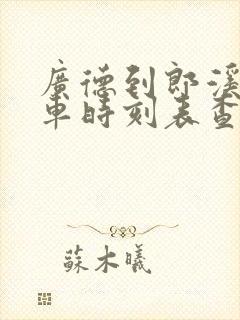 廣德到郎溪
車時刻表查
蘇木曦